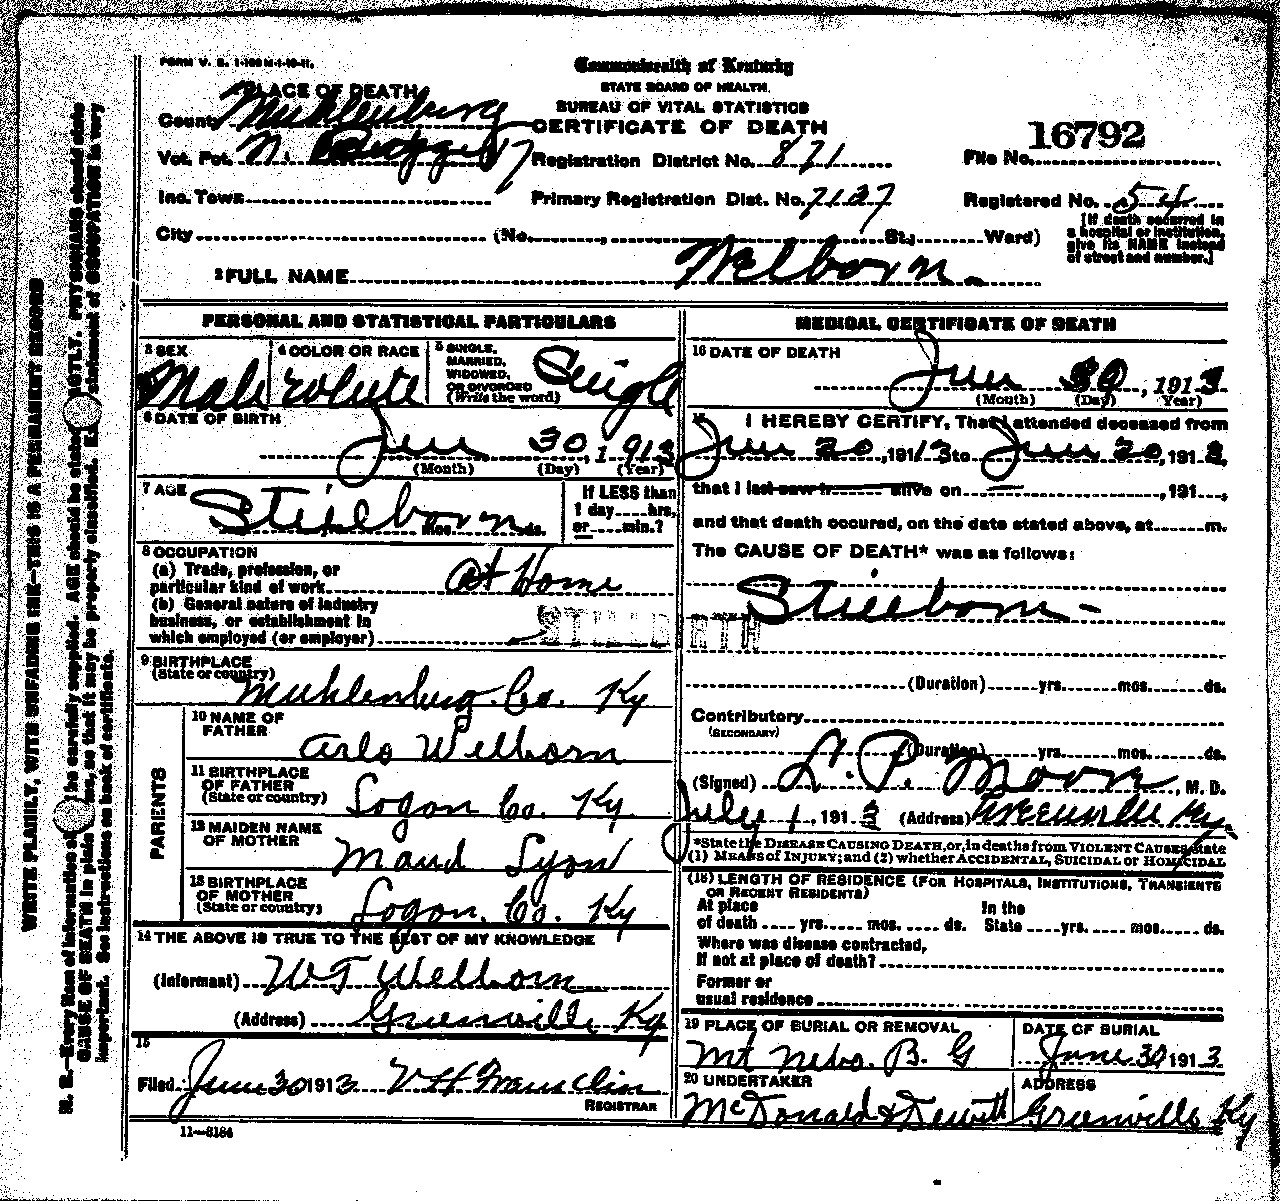 FORM V. S. 1-100 M-1-10-11.
Commonwealth of Kentucky
STATE BOARD OF HEALTH.
BUREAU OF VITAL STATISTICS
CERTIFICATE OF DEATH
PLACE OF DEATH
County Muhlenburg
Vot. Pct. N. 17
Registration District No. 871
16792
File No.
Inc. Town
Primary Registration Dist. No. 7127
Registered No. 54
City (No. , St., Ward)
[If death occurred in
a hospital or institution,
give its NAME instead
of street and number.]
2 FULL NAME Welborn.
PERSONAL AND STATISTICAL PARTICULARS
3 SEX
Male
4 COLOR OR RACE
White
5 SINGLE,
MARRIED,
WIDOWED,
OR DIVORCED
(Write the word)
Single
6 DATE OF BIRTH
Jun 30, 1913
(Month) (Day) (Year)
7 AGE
Stillborn
mos. ds.
If LESS than
1 day hrs.
or min.?
8 OCCUPATION
(a) Trade, profession, or
particular kind of work At Home
(b) General nature of industry
business, or establishment in
which employed (or employer)
STILLBIRTH
9 BIRTHPLACE
(State or country)
Muhlenburg. Co. Ky
PARENTS
10 NAME OF
FATHER
Arlo Welborn
11 BIRTHPLACE
OF FATHER
(State or country)
Logan Co. Ky.
12 MAIDEN NAME
OF MOTHER
Maud Lyon
13 BIRTHPLACE
OF MOTHER
(State or country)
Logan. Co. Ky
14 THE ABOVE IS TRUE TO THE BEST OF MY KNOWLEDGE
(Informant) W T Welborn
(Address) Greenville Ky
15
Filed June 30 1913
REGISTRAR
11-3184
MEDICAL CERTIFICATE OF DEATH
16 DATE OF DEATH
Jun 30, 1913
(Month) (Day) Year)
17 I HEREBY CERTIFY, That I attended deceased from
Jun 30, 1913 to Jun 30, 1913,
that I last saw h alive on , 191 ,
and that death occured, on the date stated above, at m.
The CAUSE OF DEATH* was as follows:
Stillborn-
(Duration) yrs. mos. ds.
Contributory
(SECONDARY)
(Duration) yrs. mos. ds.
(Signed) L. P. Moore, M. D.
July 1, 1913 (Address) Greenville Ky.
*State the DISEASE CAUSING DEATH, or, in deaths from VIOLENT CAUSES, state
(1) MEANS of INJURY; and (2) whether ACCIDENTAL, SUICIDAL or HOMICIDAL
(18) LENGTH OF RESIDENCE (FOR HOSPITALS, INSTITUTIONS, TRANSIENTS
OR RECENT RESIDENTS)
At place In the
of death yrs. mos. ds. State yrs. mos. ds.
Where was disease contracted,
If not at place of death?
Former or
usual residence
19 PLACE OF BURIAL OR REMOVAL
Mt Nebo. B. G
DATE OF BURIAL
June 30 1913
20 UNDERTAKER
McDonald & Dewitt
ADDRESS
Greenville Ky
WRITE PLAINLY, WITH UNFADING INK—THIS IS A PERMANENT RECORD
N. B.—Every item of information should be carefully supplied. AGE should be stated EXACTLY. PHYSICIANS should state
CAUSE OF DEATH in plain terms, so that it may be properly classified. Exact statement of OCCUPATION is very
important. See instructions on back of certificate.